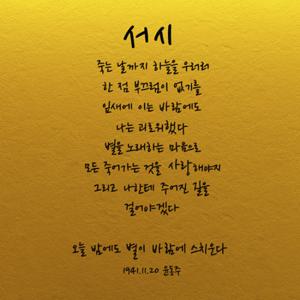 서시
죽는 날까지 하늘을 우러러
한 점 부끄럼이 없기를
잎새에 이는 바람에도
나는 괴로워했다
별을 노래하는 마음으로
모든 죽어가는 것을 사랑해야지
그리고 나한테 주어진 길을
걸어야겠다
오늘 밤에도 별이 바람에 스치운다
1941.11.20 윤동주